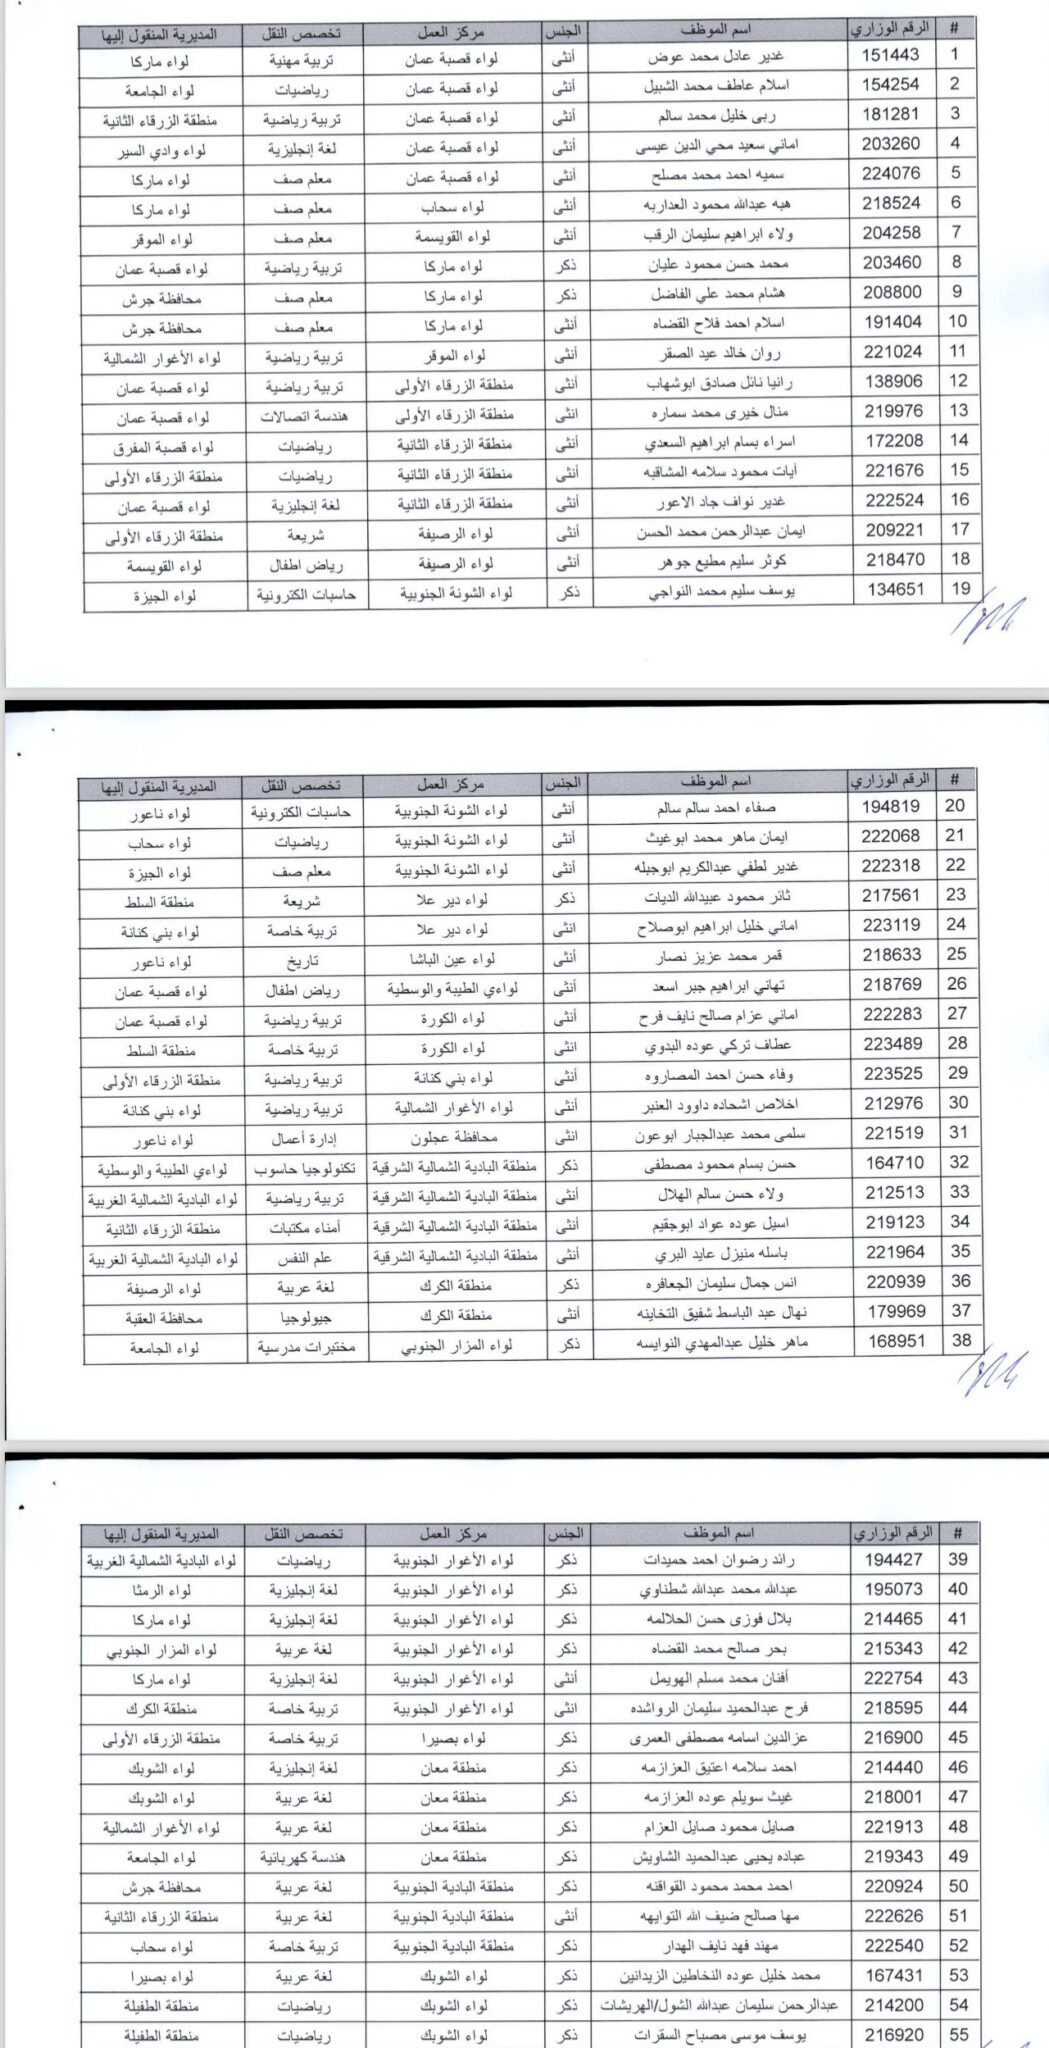 # الرقم الوزاري اسم الموظف الجنس مركز العمل تخصص النقل المديرية المنقول إليها
1 151443 غدير عادل محمد عوض أنثى لواء قصبة عمان تربية مهنية لواء ماركا
2 154254 اسلام عاطف محمد الشبيل أنثى لواء قصبة عمان رياضيات لواء الجامعة
3 181281 ربى خليل محمد سالم أنثى لواء قصبة عمان تربية رياضية منطقة الزرقاء الثانية
4 203260 اماني سعيد محي الدين عيسى أنثى لواء قصبة عمان لغة إنجليزية لواء وادي السير
5 224076 سميه احمد محمد مصلح أنثى لواء قصبة عمان معلم صف لواء ماركا
6 218524 هبه عبدالله محمود العداربه أنثى لواء سحاب معلم صف لواء ماركا
7 204258 ولاء ابراهيم سليمان الرقب أنثى لواء القويسمة معلم صف لواء الموقر
8 203460 محمد حسن محمود عليان ذكر لواء ماركا تربية رياضية لواء قصبة عمان
9 208800 هشام محمد علي الفاضل ذكر لواء ماركا معلم صف محافظة جرش
10 191404 اسلام احمد فلاح القضاه أنثى لواء ماركا معلم صف محافظة جرش
11 221024 روان خالد عيد الصقر أنثى لواء الموقر تربية رياضية لواء الأغوار الشمالية
12 138906 رانيا نائل صادق ابوشهاب أنثى منطقة الزرقاء الأولى تربية رياضية لواء قصبة عمان
13 219976 منال خيرى محمد سماره انثى منطقة الزرقاء الأولى هندسة اتصالات لواء قصبة عمان
14 172208 اسراء بسام ابراهيم السعدي أنثى منطقة الزرقاء الثانية رياضيات لواء قصبة المفرق
15 221676 آيات محمود سلامه المشاقبه أنثى منطقة الزرقاء الثانية رياضيات منطقة الزرقاء الأولى
16 222524 غدير نواف جاد الاعور أنثى منطقة الزرقاء الثانية لغة إنجليزية لواء قصبة عمان
17 209221 ايمان عبدالرحمن محمد الحسن أنثى لواء الرصيفة شريعة منطقة الزرقاء الأولى
18 218470 كوثر سليم مطيع جوهر أنثى لواء الرصيفة رياض اطفال لواء القويسمة
19 134651 يوسف سليم محمد النواجي ذكر لواء الشونة الجنوبية حاسبات الكترونية لواء الجيزة
# الرقم الوزاري اسم الموظف الجنس مركز العمل تخصص النقل المديرية المنقول إليها
20 194819 صفاء احمد سالم سالم أنثى لواء الشونة الجنوبية حاسبات الكترونية لواء ناعور
21 222068 ايمان ماهر محمد ابوغيث أنثى لواء الشونة الجنوبية رياضيات لواء سحاب
22 222318 غدير لطفي عبدالكريم ابوجبله أنثى لواء الشونة الجنوبية معلم صف لواء الجيزة
23 217561 ثائر محمود عبيدالله الديات ذكر لواء دير علا شريعة منطقة السلط
24 223119 اماني خليل ابراهيم ابوصلاح انثى لواء دير علا تربية خاصة لواء بني كنانة
25 218633 قمر محمد عزيز نصار أنثى لواء عين الباشا تاريخ لواء ناعور
26 218769 تهاني ابراهيم جبر اسعد أنثى لواءي الطيبة والوسطية رياض اطفال لواء قصبة عمان
27 222283 اماني عزام صالح نايف فرح أنثى لواء الكورة تربية رياضية لواء قصبة عمان
28 223489 عطاف تركي عوده البدوي انثى لواء الكورة تربية خاصة منطقة السلط
29 223525 وفاء حسن احمد المصاروه أنثى لواء بني كنانة تربية رياضية منطقة الزرقاء الأولى
30 212976 اخلاص اشحاده داوود العنبر أنثى لواء الأغوار الشمالية تربية رياضية لواء بني كنانة
31 221519 سلمى محمد عبدالجبار ابوعون انثى محافظة عجلون إدارة أعمال لواء ناعور
32 164710 حسن بسام محمود مصطفى ذكر منطقة البادية الشمالية الشرقية تكنولوجيا حاسوب لواءي الطيبة والوسطية
33 212513 ولاء حسن سالم الهلال أنثى منطقة البادية الشمالية الشرقية تربية رياضية لواء البادية الشمالية الغربية
34 219123 اسيل عوده عواد ابوجقيم أنثى منطقة البادية الشمالية الشرقية أمناء مكتبات منطقة الزرقاء الثانية
35 221964 باسله منيزل عايد البري أنثى منطقة البادية الشمالية الشرقية علم النفس لواء البادية الشمالية الغربية
36 220939 انس جمال سليمان الجعافره ذكر منطقة الكرك لغة عربية لواء الرصيفة
37 179969 نهال عبد الباسط شفيق التخاينه أنثى منطقة الكرك جيولوجيا محافظة العقبة
38 168951 ماهر خليل عبدالمهدي النوايسه ذكر لواء المزار الجنوبي مختبرات مدرسية لواء الجامعة
# الرقم الوزاري اسم الموظف الجنس مركز العمل تخصص النقل المديرية المنقول إليها
39 194427 رائد رضوان احمد حميدات ذكر لواء الأغوار الجنوبية رياضيات لواء البادية الشمالية الغربية
40 195073 عبدالله محمد عبدالله شطناوي ذكر لواء الأغوار الجنوبية لغة إنجليزية لواء الرمثا
41 214465 بلال فوزى حسن الحلالمه ذكر لواء الأغوار الجنوبية لغة إنجليزية لواء ماركا
42 215343 بحر صالح محمد القضاه ذكر لواء الأغوار الجنوبية لغة عربية لواء المزار الجنوبي
43 222754 أفنان محمد مسلم الهويمل أنثى لواء الأغوار الجنوبية لغة إنجليزية لواء ماركا
44 218595 فرح عبدالحميد سليمان الرواشده انثى لواء الأغوار الجنوبية تربية خاصة منطقة الكرك
45 216900 عزالدين اسامه مصطفى العمرى ذكر لواء بصيرا تربية خاصة منطقة الزرقاء الأولى
46 214440 احمد سلامه اعتيق العزازمه ذكر منطقة معان لغة إنجليزية لواء الشوبك
47 218001 غيث سويلم عوده العزازمه ذكر منطقة معان لغة عربية لواء الشوبك
48 221913 صايل محمود صايل العزام ذكر منطقة معان لغة عربية لواء الأغوار الشمالية
49 219343 عباده يحيى عبدالحميد الشاويش ذكر منطقة معان هندسة كهربائية لواء الجامعة
50 220924 احمد محمد محمود القواقنه ذكر منطقة البادية الجنوبية لغة عربية محافظة جرش
51 222626 مها صالح ضيف الله التوايهه أنثى منطقة البادية الجنوبية لغة عربية منطقة الزرقاء الثانية
52 222540 مهند فهد نايف الهدار ذكر منطقة البادية الجنوبية تربية خاصة لواء سحاب
53 167431 محمد خليل عوده النخاطين الزيدانين ذكر لواء الشوبك لغة عربية لواء بصيرا
54 214200 عبدالرحمن سليمان عبدالله الشول/الهريشات ذكر لواء الشوبك رياضيات منطقة الطفيلة
55 216920 يوسف موسى مصباح السقرات ذكر لواء الشوبك رياضيات منطقة الطفيلة